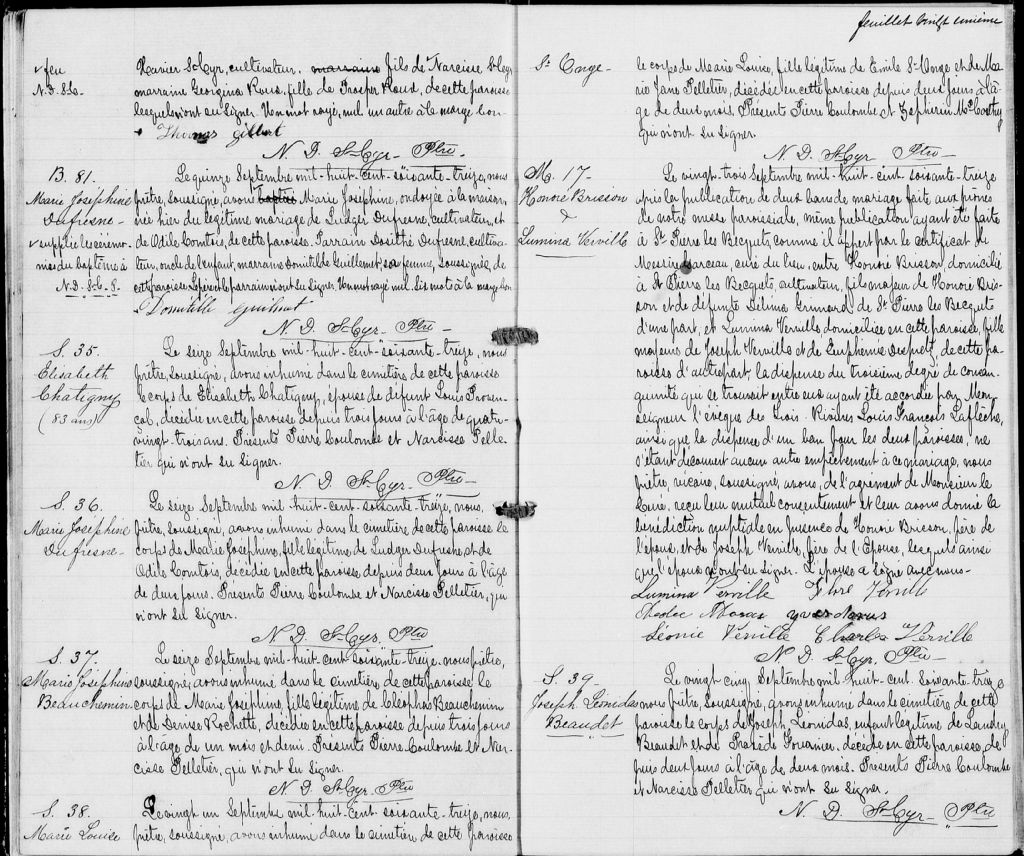 feuillet vingt unième
v feu
N. D. S. C.
Xavier St-Cyr, cultivateur, marraine fils de Narcisse St-Cyr
marraine Georgina Roux, fille de Prosper Roux, de cette paroisse
lesquels n'ont su signer. Un mot rayé, nul un autre à la marge bon-
Thomas Gilbert
N. D. St-Cyr- Ptre-
B. 81.
Marie Josephine
Dufresne-
v supplée les cérémo-
nies du baptême à
N. D. St-C. P.
Le quinze Septembre mil-huit-cent-soixante-treize, nous
prêtre, soussigné, avons baptisé Marie Joséphine, ondoyée à la maison,
née hier du légitime mariage de Ludger Dufresne, cultivateur, et
de Odile Comtois, de cette paroisse. Parrain Dosithé Dufresne, cultiva-
teur, oncle de l'enfant, marraine Domitilde Guillemet, sa femme, soussignée, de
cette paroisse Lepère et le parrain n'ont su signer. Un mot rayé nul. Six mots à la marge bon
Domitille guilmet
N. D. St-Cyr- Ptre-
S. 35.
Elisabeth
Chatigny
(83 ans)
Le seize Septembre mil-huit-cent-soixante-treize, nous
prêtre, soussigné, avons inhumé dans le cimetière de cette paroisse
le corps de Elisabeth Chatigny, épouse de difunt Louis Proven-
çal, décédée en cette paroisse depuis trois jours à l'âge de quatre
vingt-trois ans. Présents Pierre Coulombe et Narcisse Pelle-
tier qui n'ont su signer.
N. D. St-Cyr. Ptre-
S. 36.
Marie Josephine
Dufresne-
Le seize Septembre mil-huit-cent-soixante-treize, nous,
prêtre, soussigné, avons inhumé dans le cimetière de cette paroisse le
corps de Marie Joséphine, fille légitime de Ludger Dufresne, et de
Odile Comtois, décédée en cette paroisse depuis deux jours à l'âge
de deux jours. Présents Pierre Coulombe et Narcisse Pelletier, qui
n'ont su signer.
N. D. St-Cyr. Ptre
S. 37.
Marie Josephine
Beauchemin
Le seize Septembre mil-huit-cent-soixante-treize, nous prêtre,
soussigné, avons inhumé dans le cimetière de cette paroisse le
corps de Marie Josephine, fille légitime de Cléophas Beauchemin
et de Denise Rochette, décédée en cette paroisse depuis trois jours
à l'âge de un mois et demi. Présents Pierre Coulombe et Nar-
cisse Pelletier, qui n'ont su signer.
N. D. St-Cyr. Ptre
S. 38.
Marie Louise
Le vingt un Septembre mil-huit-cent-soixante-treize, nous,
prêtre, soussigné, avons inhumé dans le cimetière de cette paroisse
St Onge-
le corps de Marie Louise, fille légitime de Emile St-Onge et de Ma-
rie Jane Pelletier, décédée en cette paroisse depuis deux jours à l'â-
ge de deux mois. Présents Pierre Coulombe et Zepherin McCarthy
qui n'ont su signer.
N. D. St-Cyr Ptre-
M. 17-
Honoré Brisson
&
Lumina Verville
Le vingt-trois Septembre mil-huit-cent-soixante-treize
après la publication de deux bans de mariage faite aux prônes
de notre messe paroissiale, même publication ayant été faite
à St Pierre les Becquets, comme il appert par le certificat de
Messire Marceau, curé du lieu, entre Honoré Brisson, domicilié
à St Pierre les Becquets, cultivateur, fils majeur de Honoré Bris-
son et de défunte Délima Grimard de St Pierre les Becquets
d'une part, et Lumina Verville domiciliée en cette paroisse, fille
majeure de Joseph Verville et de Euphemie Despretz, de cette pa-
roisse d'autre part, la dispense du troisième degré de consan-
guinité que se trouvait entre eux ayant été accordée par Mon-
seigneur l'évêque des Trois-Rivières Louis François Laflèche,
ainsi que la dispense d'un ban pour les deux paroisses, ne
s'étant découvert aucun autre empêchement à ce mariage, nous
prêtre, vicaire, soussigné, avons, de l'agrément de Monsieur le
Curé, reçu leur mutuel consentement et leur avons donné la
bénédiction nuptiale en présence de Honoré Brisson, père de
l'époux, et de Joseph Verville, père de l'Epouse, lesquels ainsi
que l'époux n'ont su signer. L'épouse a signé avec nous-
Lumina Verville
Léonie Verville Charles Verville
N. D. St-Cyr. Ptre-
S. 39-
Joseph Léonidas
Beaudet-
Le vingt cinq Septembre mil-huit-cent-soixante-treize
nous prêtre, soussigné, avons inhumé dans le cimetière de cette
paroisse le corps de Joseph Léonidas, enfant légitime, de Landry
Beaudet et de Praxède, décédé en cette paroisse, de-
puis deux jours à l'âge de deux mois. Présents Pierre Coulombe
et Narcisse Pelletier qui n'ont su signer.
N. D. St-Cyr- Ptre